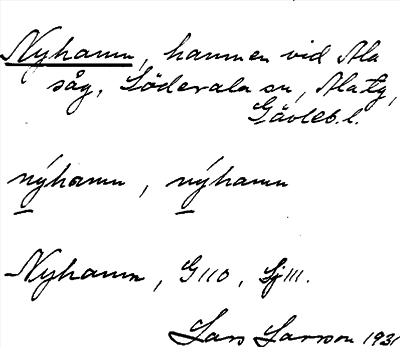 Nyhamn, hamnen vid Ala
såg, Söderala sn, Ala tg,
Gävleb. l.
nýhamn, nýhamn
Nyhamn, G110, Sj111.
Lars Larsson 1931